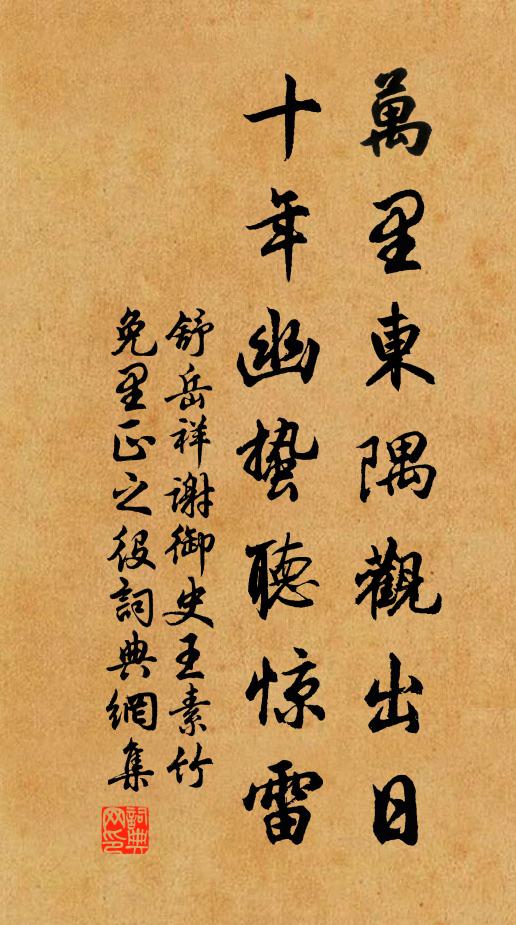 萬里東隅觀出日
十年幽蟄聽惊雷
舒岳祥谢御史王素竹
免里正之役詞典網集
詞典网印